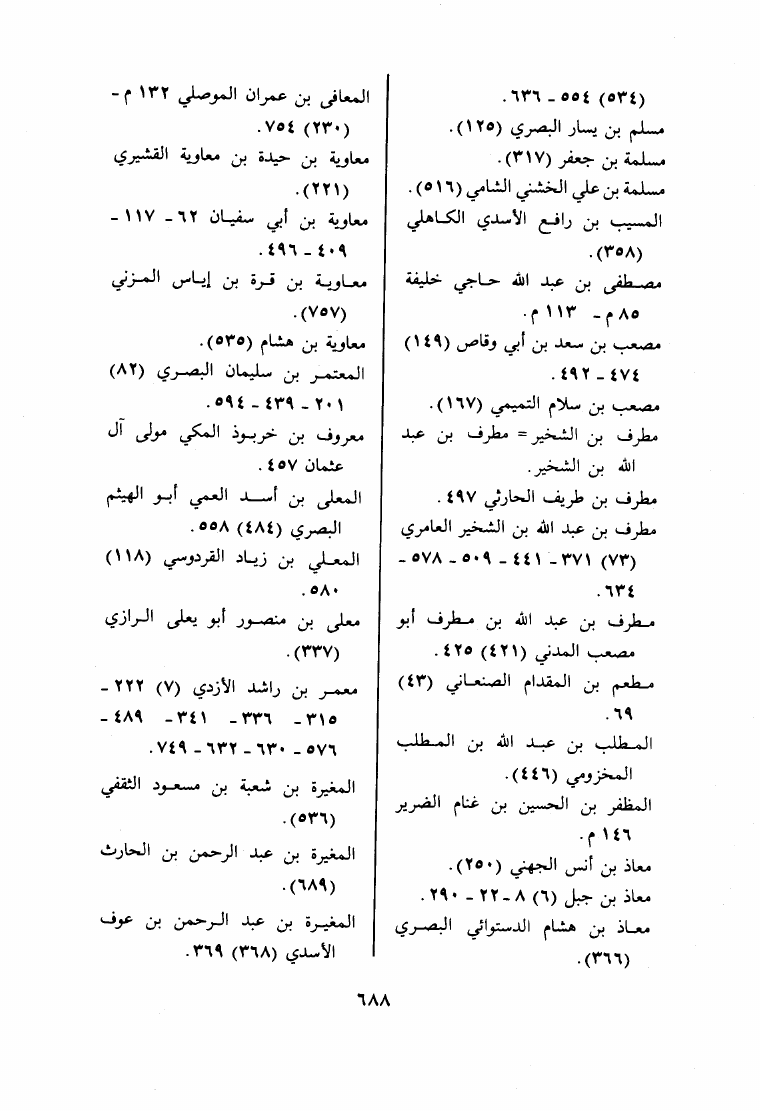 (٥٣٤) ٥٥٤ - ٦٣٦.
مسلم بن يسار البصري (١٢٥).
مسلمة بن جعفر (٣١٧).
مسلمة بن علي الخشني الشامي (٥١٦).
المسيب بن رافع الأسدي الكاهلي
(٣٥٨).
مصطفى بن عبد الله حاجي خليفة
٨٥ م - ١١٣ م.
مصعب بن سعد بن أبي وقاص (١٤٩)
٤٧٤ - ٤٩٢.
مصعب بن سلام التميمي (١٦٧).
مطرف بن الشخير = مطرف بن عبد
الله بن الشخير.
مطرف بن طريف الحارثي ٤٩٧.
مطرف بن عبد الله بن الشخير العامري
(٧٣) ٣٧١ - ٤٤١ - ٥٠٩ - ٥٧٨ -
٦٣٤.
مطرف بن عبد الله بن مطرف أبو
مصعب المدني (٤٢١) ٤٢٥.
مطعم بن المقدام الصنعاني (٤٣)
٦٩.
المطلب بن عبد الله بن المطلب
المخزومي (٤٤٦).
المظفر بن الحسين بن غنام الضرير
١٤٦ م.
معاذ بن أنس الجهني (٢٥٠).
معاذ بن جبل (٦) ٨ - ٢٢ - ٢٩٠.
معاذ بن هشام الدستوائي البصري
(٣٦٦).
المعافى بن عمران الموصلي ١٣٢ م -
(٢٣٠) ٧٥٤.
معاوية بن حيدة بن معاوية القشيري
(٢٢١).
معاوية بن أبي سفيان ٦٢ - ١١٧ -
٤٠٩ - ٤٩٦.
معاوية بن قرة بن إياس المزني
(٧٥٧).
معاوية بن هشام (٥٣٥).
المعتمر بن سليمان البصري (٨٢)
٢٠١ - ٤٣٩ - ٥٩٤.
معروف بن خربوذ المكي مولى آل
عثمان ٤٥٧.
المعلى بن أسد العمي أبو الهيثم
البصري (٤٨٤) ٥٥٨.
المعلي بن زياد القردوسي (١١٨)
٥٨٠.
معلى بن منصور أبو يعلى الرازي
(٣٣٧).
معمر بن راشد الأزدي (٧) ٢٢٢ -
٣١٥ - ٣٣٦ - ٣٤١ - ٤٨٩ -
٥٧٦ - ٦٣٠ - ٦٣٢ - ٧٤٩.
المغيرة بن شعبة بن مسعود الثقفي
(٥٣٦).
المغيرة بن عبد الرحمن بن الحارث
(٦٨٩).
المغيرة بن عبد الرحمن بن عوف
الأسدي (٣٦٨) ٣٦٩.
٦٨٨